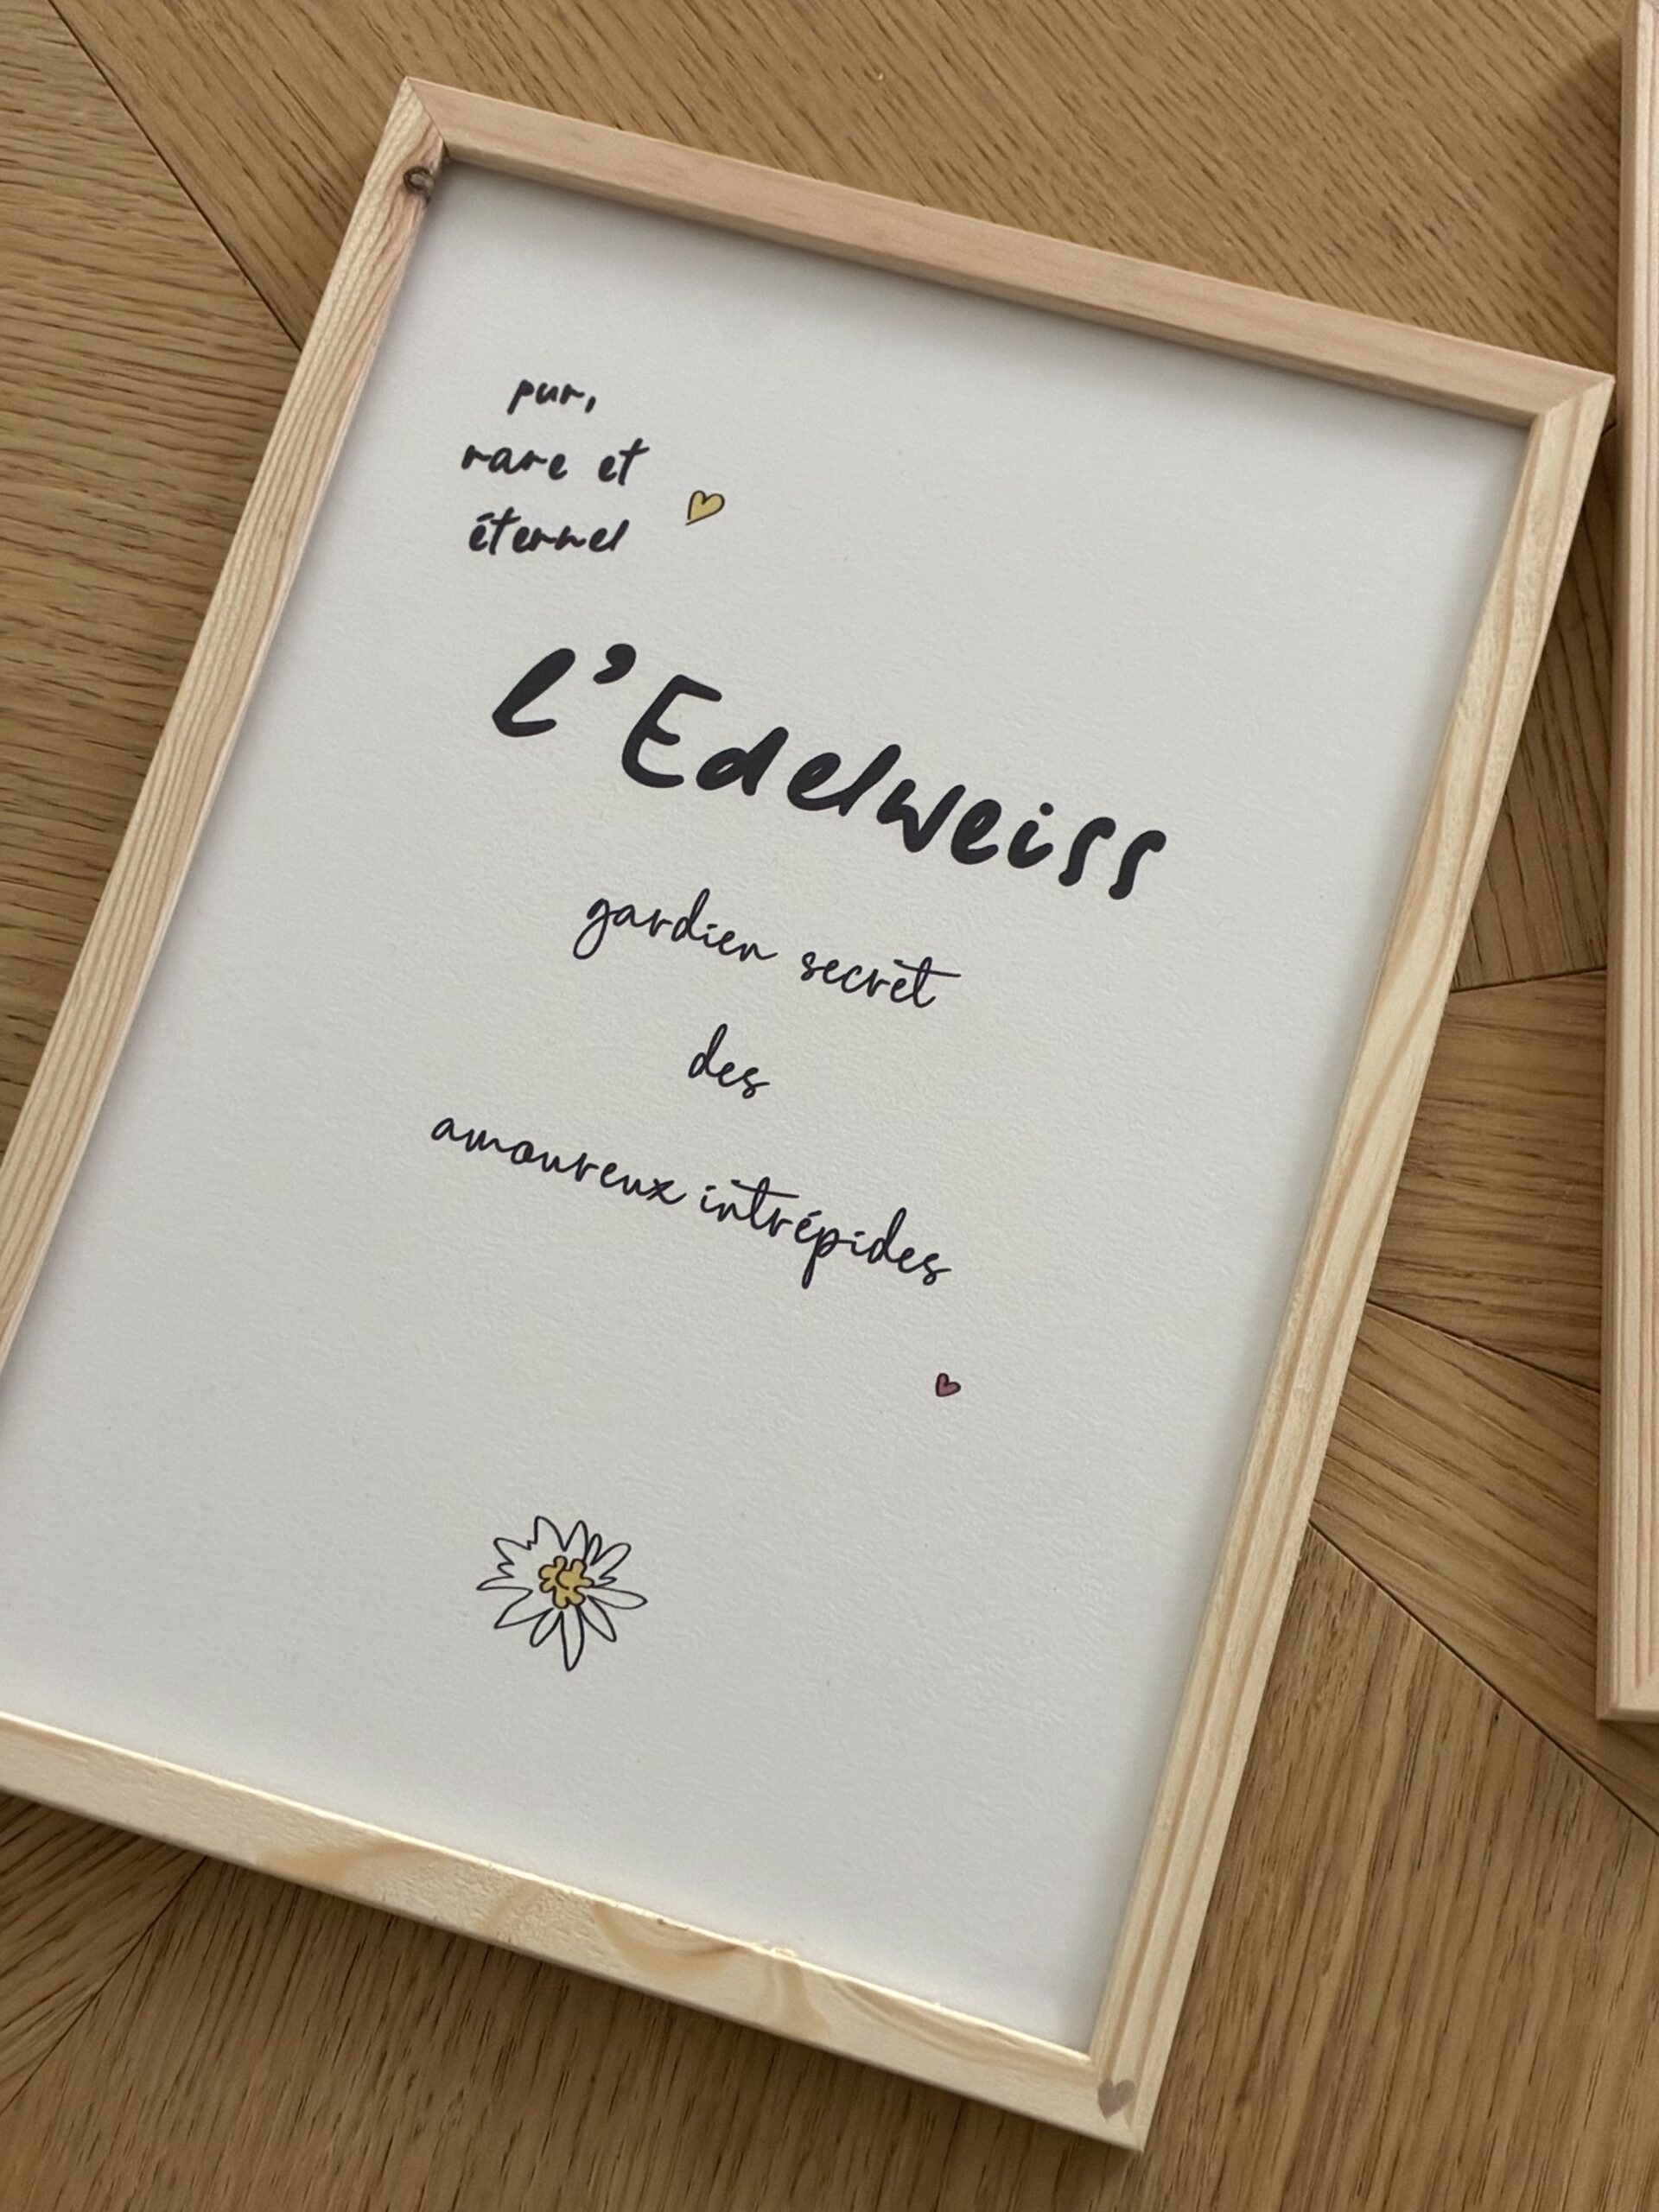 pur,
rare et
éternel
l'Edelweiss
gardien secret
des
amoureux intrépides